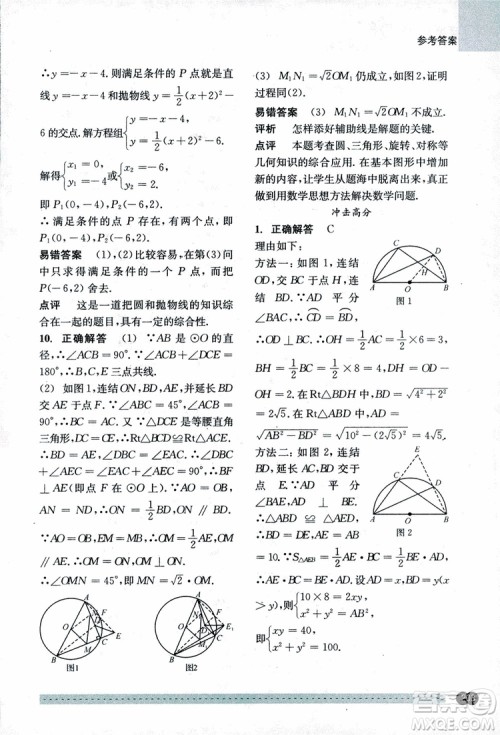 参考答案
∴y=-x-4. 则满足条件的 P 点就是直
线 y=-x-4 和抛物线 y=1/2(x+2)²-
6 的交点. 解方程组{y=-x-4, y=1/2(x+2)²-6.
解得{x₁=0, y₁=-4; {x₂=-6, y₂=2.
即 P₁(0,-4), P₂(-6,2).
∴满足条件的点 P 存在, 有两个点, 即
P₁(0,-4), P₂(-6,2).
易错答案 (1),(2)比较容易, 在第(3)问
中只求得满足条件的一个点, 而把
P₂(-6,2)舍去.
点评 这是一道把圆和抛物线的知识综
合在一起的题目, 具有一定的综合性.
10. 正确解答 (1) ∵AB 是⊙O 的直
径, ∴∠ACB=90°. ∴∠ACB+∠DCE
=180°. ∴B,C,E三点共线.
(2) 如图 1, 连结 ON,BD,AE, 并延长 BD
交 AE 于 F. ∵∠ABC=45°, ∠ACB=
90°, ∴BC=AC. 又∵△DCE 是等腰直角
三角形, DC=CE, ∴Rt△BDC≌Rt△AEC.
∴BD=AE, ∠DBC=∠EAC. ∴∠DBE
+∠AEC=∠EAC+∠AEC=90°. ∴BF
⊥AE(即点 F 在⊙O 上). 又∵AO=OB,
AN=ND, ∴ON=1/2BD, ON∥BD.
∵AO=OB, EM=MB, ∴OM=1/2AE, OM
∥AE. ∴OM=ON, OM⊥ON.
∴∠OMN=45°, ∴即 MN=√2OM.
A
N
D
O
C
E
M
B
图1
A
N₁
D₁
O
C
E₁
M₁
B
图2
(3) M₁N₁=√2OM₁ 仍成立, 如图 2, 证明
过程同(2).
易错答案 (3) M₁N₁=√2OM₁ 不成立.
评析 怎样添好辅助线是解题的关键.
点评 本题考查圆、三角形、旋转、对称等
几何知识的综合应用. 从题海中脱离出来,
用数学思想方法解决数学问题.
冲击高分
1. 正确解答 C
理由如下:
方法一: 如图 1, 连结
OD,BC, 设 OD 交 BC 于
H. ∵∠CAD=∠DAB,
∴CD=BD.
∴OD⊥BC. ∴OH=1/2AC=1/2×6=3,
BH=1/2BC=1/2×8=4, DH=OD-
OH=2. 在 Rt△BHD 中, BD=√4²+2²
=2√5. 在 Rt△ADB 中, AD=
√AB²-BD²=√10²-(2√5)²=4√5.
C
D
H
A
O
B
图 1
方法二: 如图 2, 连结
BD, 并延长交 AC 延长
线于 E, 连结 BC.
∴△ABD≌△AED.
∴BD=DE, AE=AB=
10. ∵S△AEB=1/2AE·BC=1/2BE·AD,
∴AE·BC=BE·AD. 设 AD=x, BD=y(x
>y), 则{10×8=2xy, x²+y²=10².
即{xy=40, x²+y²=100.
E
C
D
A
O
B
图 2